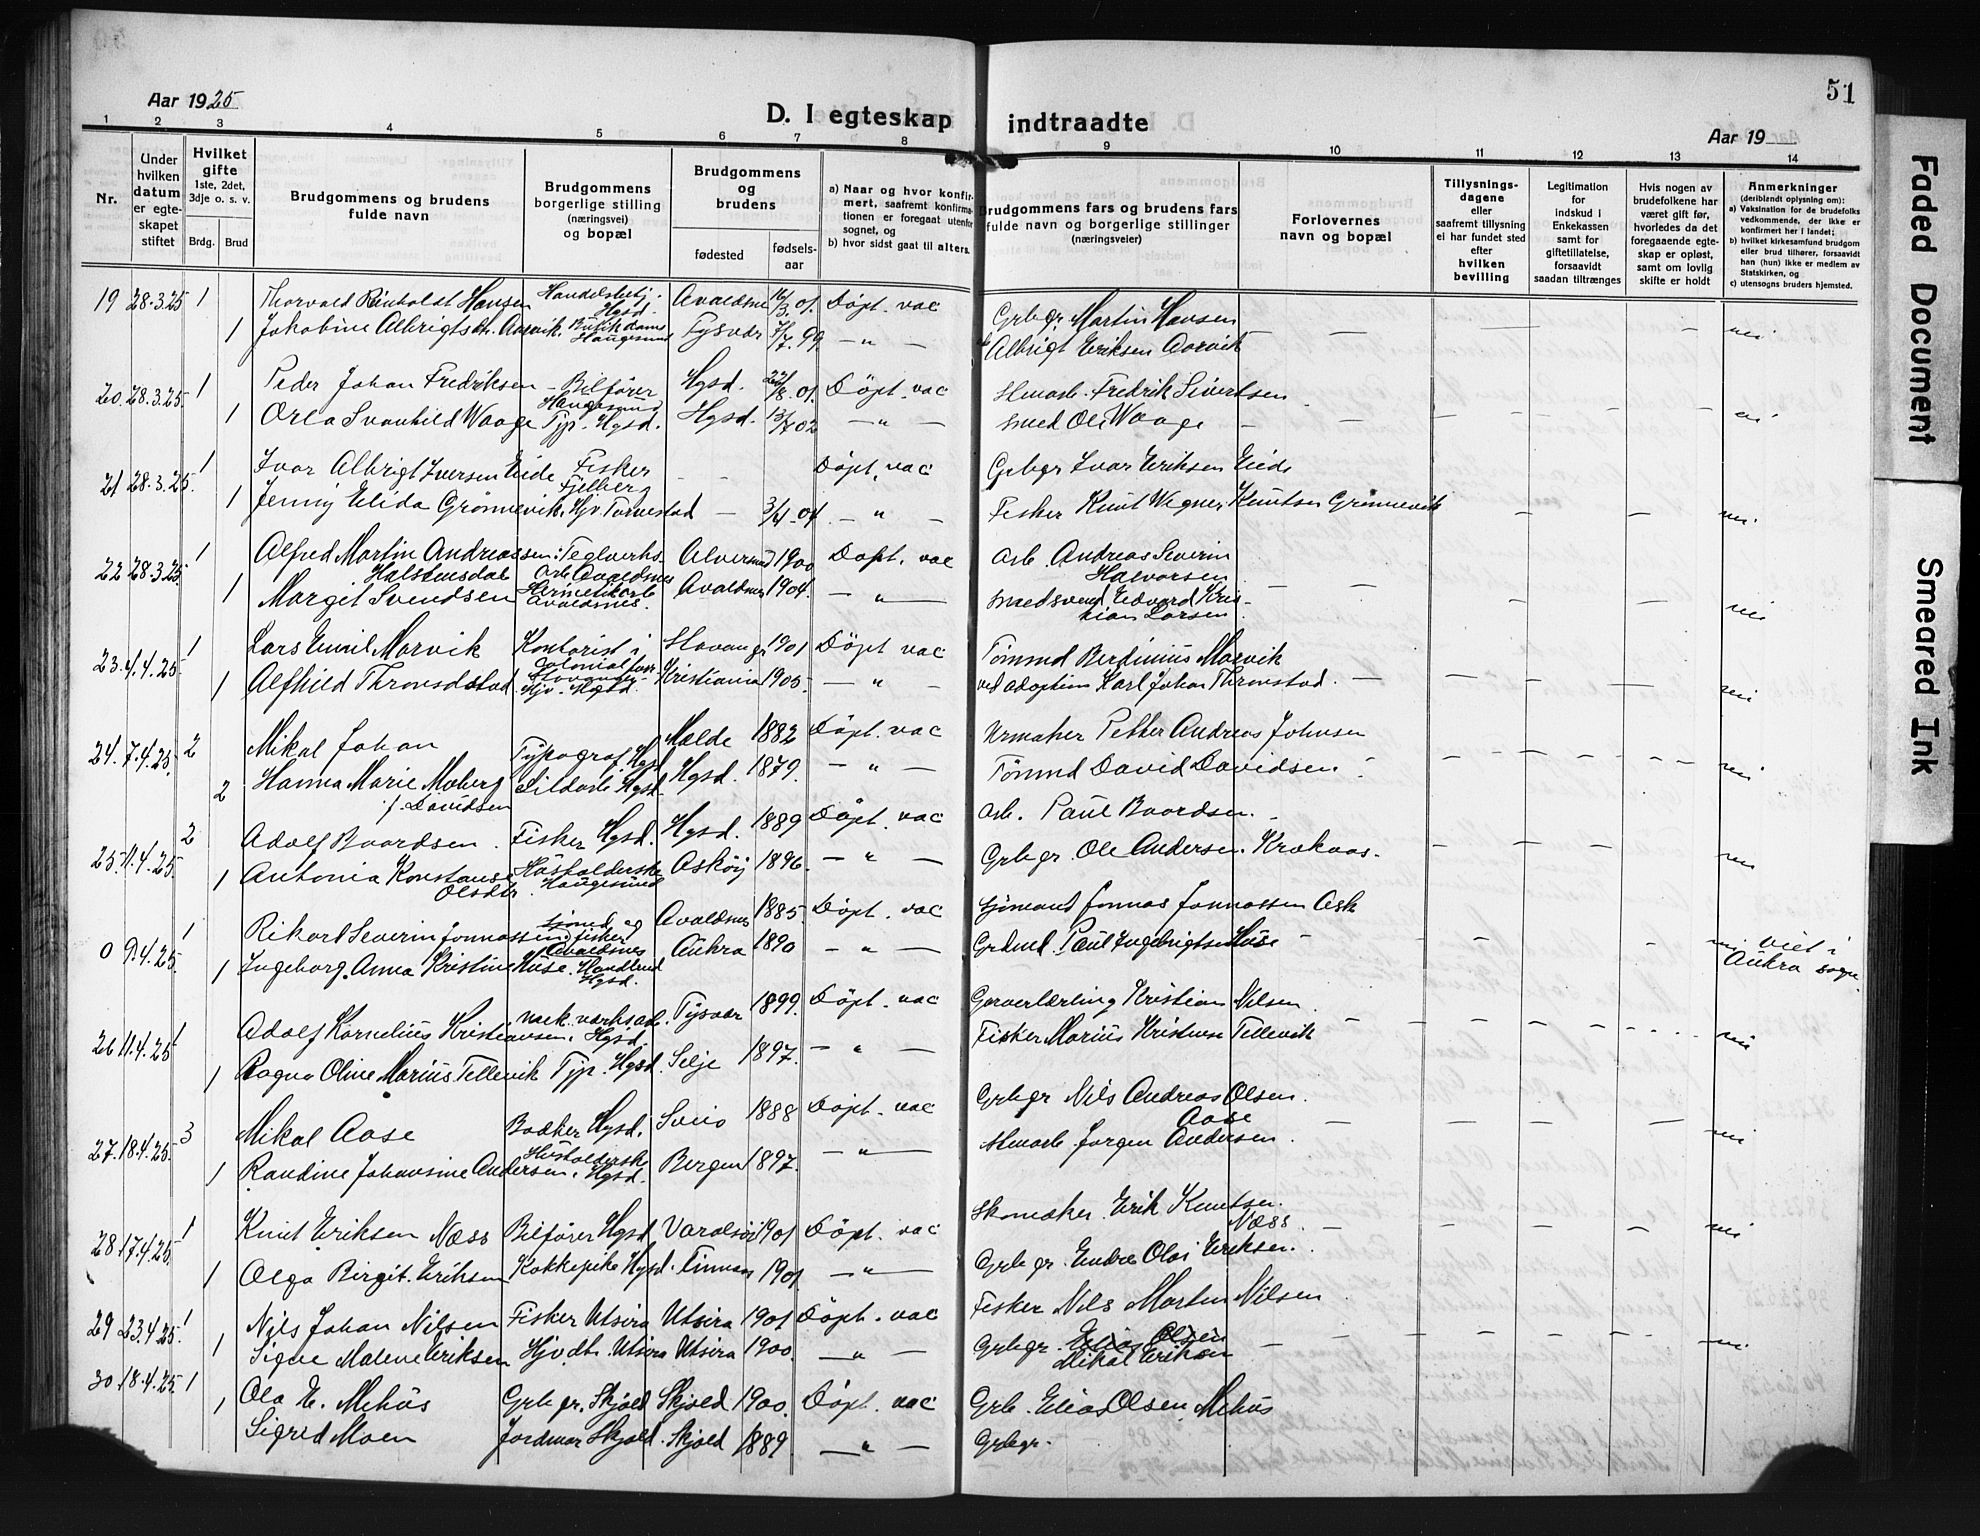 Aar 1925
D. I egteskap indtraadte
51
Aar 19
1 2 3 4 5 6 7 8 9 10 11 12 13 14
Nr.
Under hvilken datum er egte-skapet stiftet
Hvilket gifte
1ste, 2det, 3dje o. s. v.
Brdg. Brud
Brudgommens og brudens fulde navn
Brudgommens borgerlige stilling (næringsvei) og bopæl
Brudgommens og brudens
fødested fødsels-aar
a) Naar og hvor konfir-mert, saafremt konfirma-tionen er foregaat utenfor sognet, og
b) hvor sidst gaat til alters.
Brudgommens fars og brudens fars fulde navn og borgerlige stillinger (næringsveier)
Forlovernes navn og bopæl
Tillysnings-dagene eller saafremt tillysning ei har fundet sted efter hvilken bevilling
Legitimation for indskud i Enkekassen samt for giftetillatelse, forsaavidt saadan tiltrænges
Hvis nogen av brudefolkene har været gift før, hvorledes da det foregaaende egte-skap er opløst, samt om lovlig skifte er holdt
Anmerkninger (deriblandt oplysning om):
a) Vaksination for de brudefolks vedkommende, der ikke er konfirmert her i landet;
b) hvilket kirkesamfund brudgom eller brud tilhører, forsaavidt han (hun) ikke er medlem av Statskirken, og
c) utensogns bruders hjemsted.
19 28.3.25 1 Thorvald Reinholdt Hansen Handelsbetj. Hgsd. Avaldsnes 16/3.01. Döpt. vac Grbgr. Martin Hansen
1 Jakobine Albrigtsdtr. Aarvik. Butikdame Haugesund Tysvær 7/7.99. — " — Albrigt Eriksen Aarvik — — — — nei
20. 28.3.25. 1 Peder Johan Fredriksen Bilförer Haugesund Hgsd. 22/8.01. Döpt. vac Hmarb. Fredrik Sivertsen
1 Orla Svanhild Waage Typ. Hgsd. Hgsd. 13/7 02 — " — Smed Ole Waage — — — — — nei
21 28.3.25. 1 Ivar Albrigt Iversen Eide Fisker Fjelberg — — Döpt. vac Grbgr Ivar Eriksen Eide
1 Jenny Elida Grønnevik. Hjv. Torvestad — 3/4-04. — " — Fisker Knut Wegner Knutsen Grønnevik — — nei.
22 28.3.25. 1 Alfred Martin Andreassen Halstensdal Teglverks-arb. Avaldsnes Alversund 1900 Döpt. vac Arb. Andreas Severin Halvorsen
1 Margit Svendsen Hermetikarb Avaldsnes. Avaldsnes 1904. — " — Smedsvend Edvard Kris-tian Larsen — — — — nei
23. 4.4.25. 1 Lars Emil Marvik Kontorist i Colonialforr Stavanger Stavanger 1901 Döpt vac Tömmd Berdinius Marvik
1 Alfhild Thronsdstad Hjv. Hgsd. Kristiania 1905. — " — ved adoption Karl Johan Thronstad. — — — — nei
24. 7.4.25. 2 Mikal Johan Typograf Hgsd Molde 1882 Döpt. vac Urmaker Petter Andreas Johnsen
2 Hanna Marie Moberg f. Davidsen Sildarb Hgsd. Hgsd. 1879. — " — Tömmd David Davidsen — — — — nei
25. 11.4.25. 2 Adolf Baardsen. Fisker Hgsd. Hgsd. 1889 Döpt. vac Arb. Paul Baardsen.
1 Antonia Konstanse Olsdtr. Husholderske Haugesund Asköy 1896. — " — Grbgr. Ole Andersen. Krokaas. — — — nei
0 9.4.25. 1 Rikard Severin Jonnassen Sjömd og fisker Avaldsnes Avaldsnes 1885 Döpt. vac Sjömand Jonnas Jonnassen Ask
1 Ingeborg. Anna Kristine Huse. Handlend Hgsd. Aukra 1890 — " — Grdmd. Paul Ingebrigtsen Huse — — — — nei. viet i Aukra sogn.
26 11.4.25 1 Adolf Kornelius Kristiansen. mek. verksarb. Hgsd. Tysvær 1899. Döpt. vac Garverlærling Kristian Nilsen
1 Ragna Oline Marius. Tellevik Typ. Hgsd. Selje 1897. — " — Fisker Marius Kristense Tellevik — — — — nei
27. 18.4.25. 3 Mikal Aase Baker Hgsd. Sveio 1888 Döpt. vac Grbgr Nils Andreas Olsen. Aase
1 Randine Johansine Andersen. Husholderske Hgsd. Bergen 1897. — " — Hmarb. Jørgen Andersen. — — — — nei
28 17.4.25. 1 Knut Eriksen Næss Bilförer Hgsd Varalsöi 1901 Döpt. vac Skomaker. Erik Knutsen. Næss. — — — — nei
1 Olga Birgit. Eriksen Kokkepike Hgsd. Finnaas 1901 — " — Grbgr. Endre Olai Eriksen.
29 23.4.25. 1 Nils Johan Nilsen Fisker Utsira Utsira 1901 Döpt. vac Fisker Nils Martin Nilsen
1 Signe Malene Eriksen Hjv.dt. Utsira Utsira 1900. — " — Grbgr. Elias Olsen Mikal Eriksen — — — — nei.
30. 18.4.25. 1 Ola E. Mehus Grbgr. Skjold Skjold 1900. Döpt. vac Grb. Elias Olsen Mehus
1 Sigrid Moen Jordmor Skjold. Skjold 1889 — " — Grbgr.
Faded Document
Smeared Ink